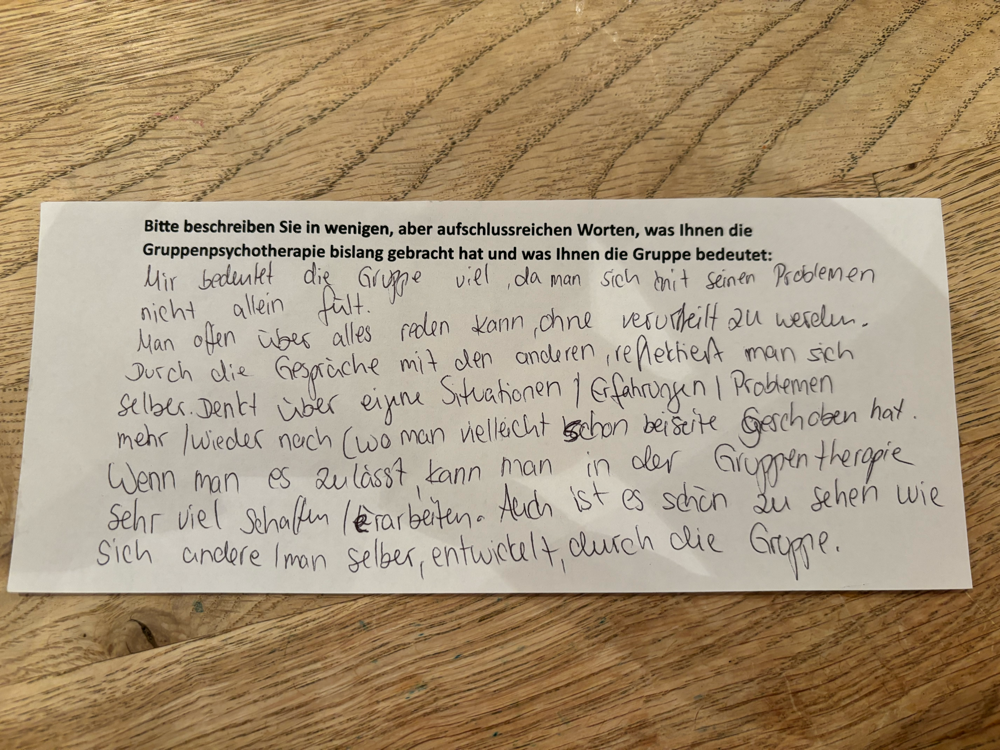 Bitte beschreiben Sie in wenigen, aber aufschlussreichen Worten, was Ihnen die
Gruppenpsychotherapie bislang gebracht hat und was Ihnen die Gruppe bedeutet:
Mir bedeutet die Gruppe viel, da man sich mit seinen Problemen
nicht allein fült.
Man offen über alles reden kann, ohne verurteilt zu werden.
Durch die Gespräche mit den anderen, reflektiert man sich
selber. Denkt über eigene Situationen / Erfahrungen / Probleme
mehr / wieder nach (wo man vielleicht schon beiseite geschoben hat.
Wenn man es zulässt, kann man in der Gruppentherapie
sehr viel schaffen / erarbeiten. Auch ist es schön zu sehen wie
sich andere / man selber, entwickelt, durch die Gruppe.